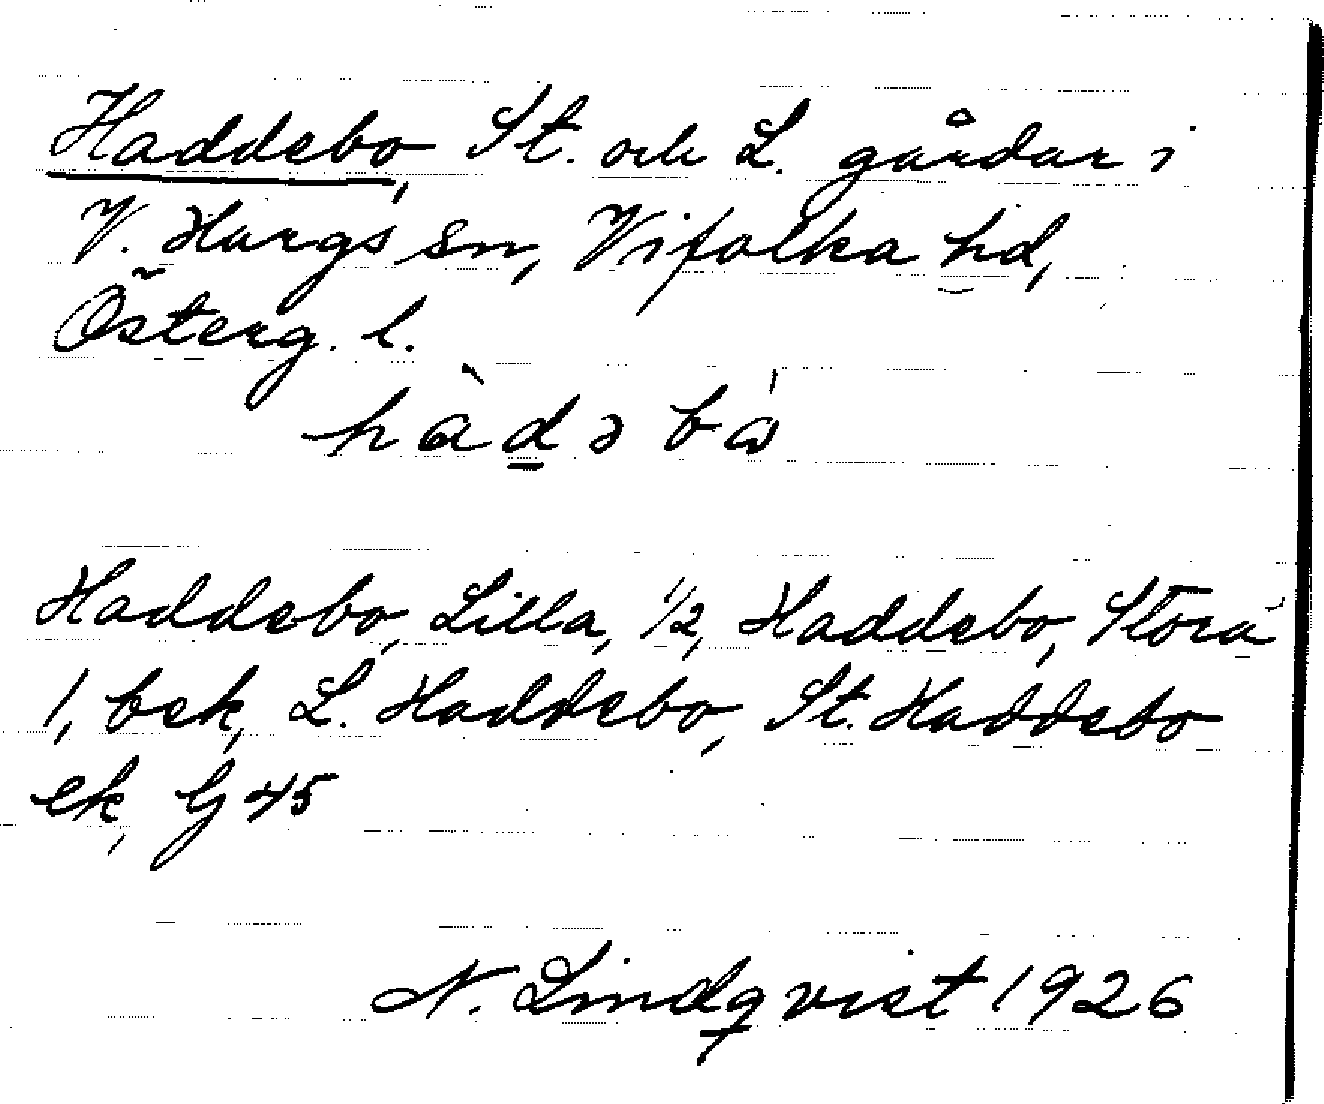 Haddebo, St. och L. gårdar i
V. Hargs sn, Vifolka hd,
Österg. l.
hàdəbò
Haddebo, Lilla, 1/2, Haddebo, Stora
1, bek, L. Haddebo, St. Haddebo
ek, G 45
N. Lindqvist 1926